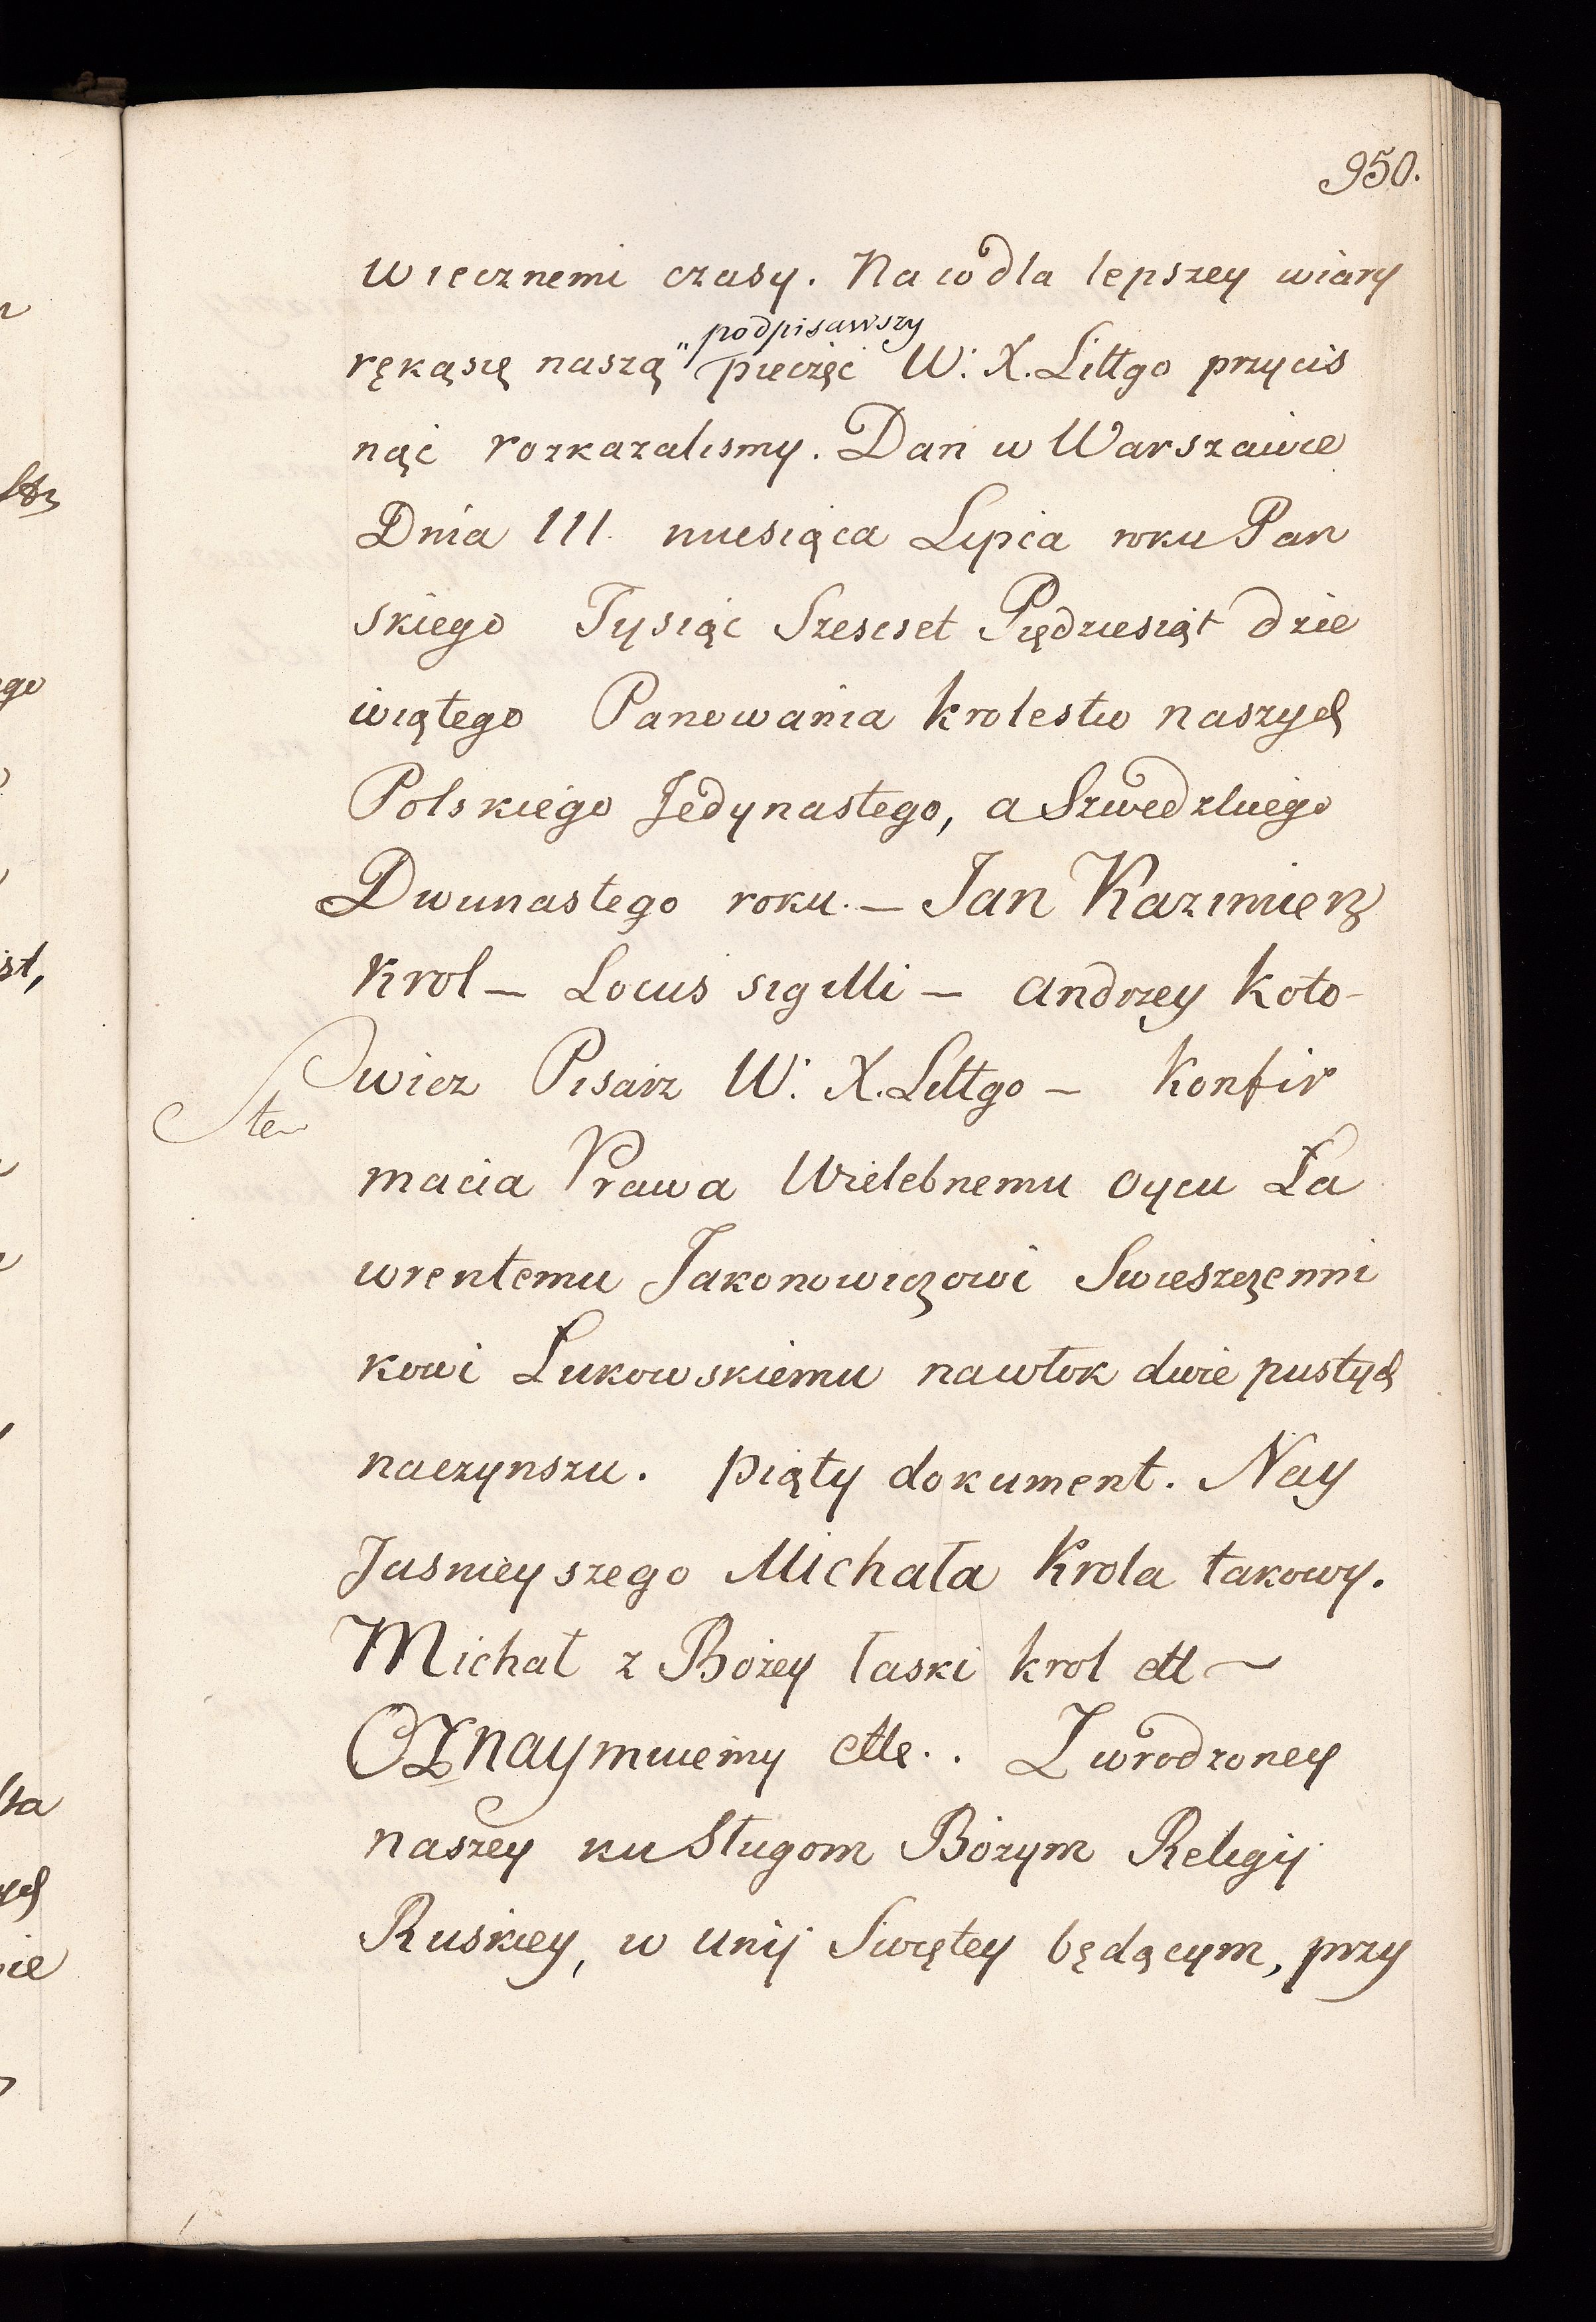 950.
wiecznemi czasy. Na co dla lepszey wiary
podpisawszy
rękąsię naszą " pieczęć W. X. Littgo przycis
nąć rozkazalismy. Dan w Warszawie
Dnia 111. miesiąca Lipca roku Pan
skiego Tysiąc Szescset Piędziesiąt dzie
wiątego Panowania krolestw naszych
Polskiego Jedynastego, a Szwedzkiego
Dwunastego roku. — Jan Kazimierz
Krol — Locus sigilli — Andrzey Koto-
wicz Pisarz W. X. Littgo — Konfir
macia Prawa Wielebnemu Oycu Ła
wrentemu Jakonowiczowi Swieszczenni
kowi Łukowskiemu na włok dwie pustych
na czynszu. Piąty dokument. Nay
Jasnieyszego Michała Krola takowy.
Michał z Bożey łaski krol ett —
Oznaymuiemy ette.. Z wrodzoney
naszey ku Sługom Bożym Religij
Ruskiey, w Unij Swiętey będącym, przy